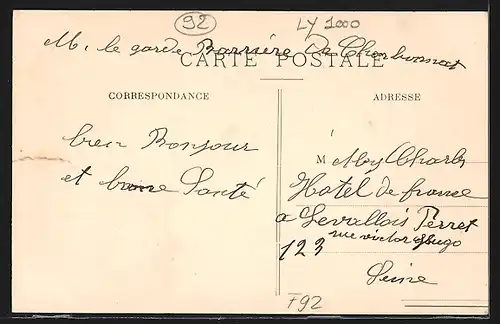 92
LY 1000
M. le garde Barrière De Charbonnat
CARTE POSTALE
CORRESPONDANCE
ADRESSE
bien Bonjour
et bonne Santé
M Charles
Hotel de france
a Levallois Perret
rue victor Hugo
123
Seine
F92